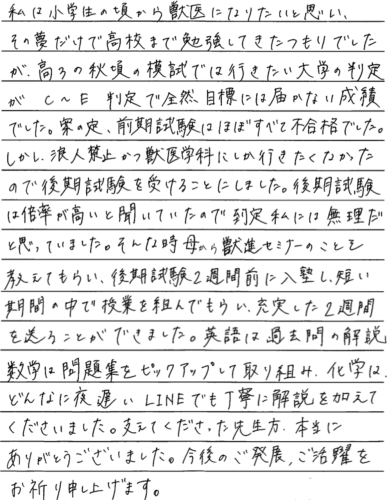 私は小学生の頃から獣医になりたいと思い、
その夢だけで高校まで勉強してきたつもりでした
が、高3の秋頃の模試では行きたい大学の判定
が C～E 判定で全然目標には届かない成績
でした。案の定、前期試験はほぼすべて不合格でした。
しかし、浪人禁止かつ獣医学科にしか行きたくなかった
ので後期試験を受けることにしました。後期試験
は倍率が高いと聞いていたので到底私には無理だ
と思っていました。そんな時母から獣進セミナーのことを
教えてもらい、後期試験2週間前に入塾し、短い
期間の中で授業を組んでもらい、充実した2週間
を送ることができました。英語は過去問の解説、
数学は問題集をピックアップして取り組み、化学は、
どんなに夜遅いLINEでも丁寧に解説を加えて
くださいました。支えてくださった先生方、本当に
ありがとうございました。今後のご発展、ご活躍を
お祈り申し上げます。